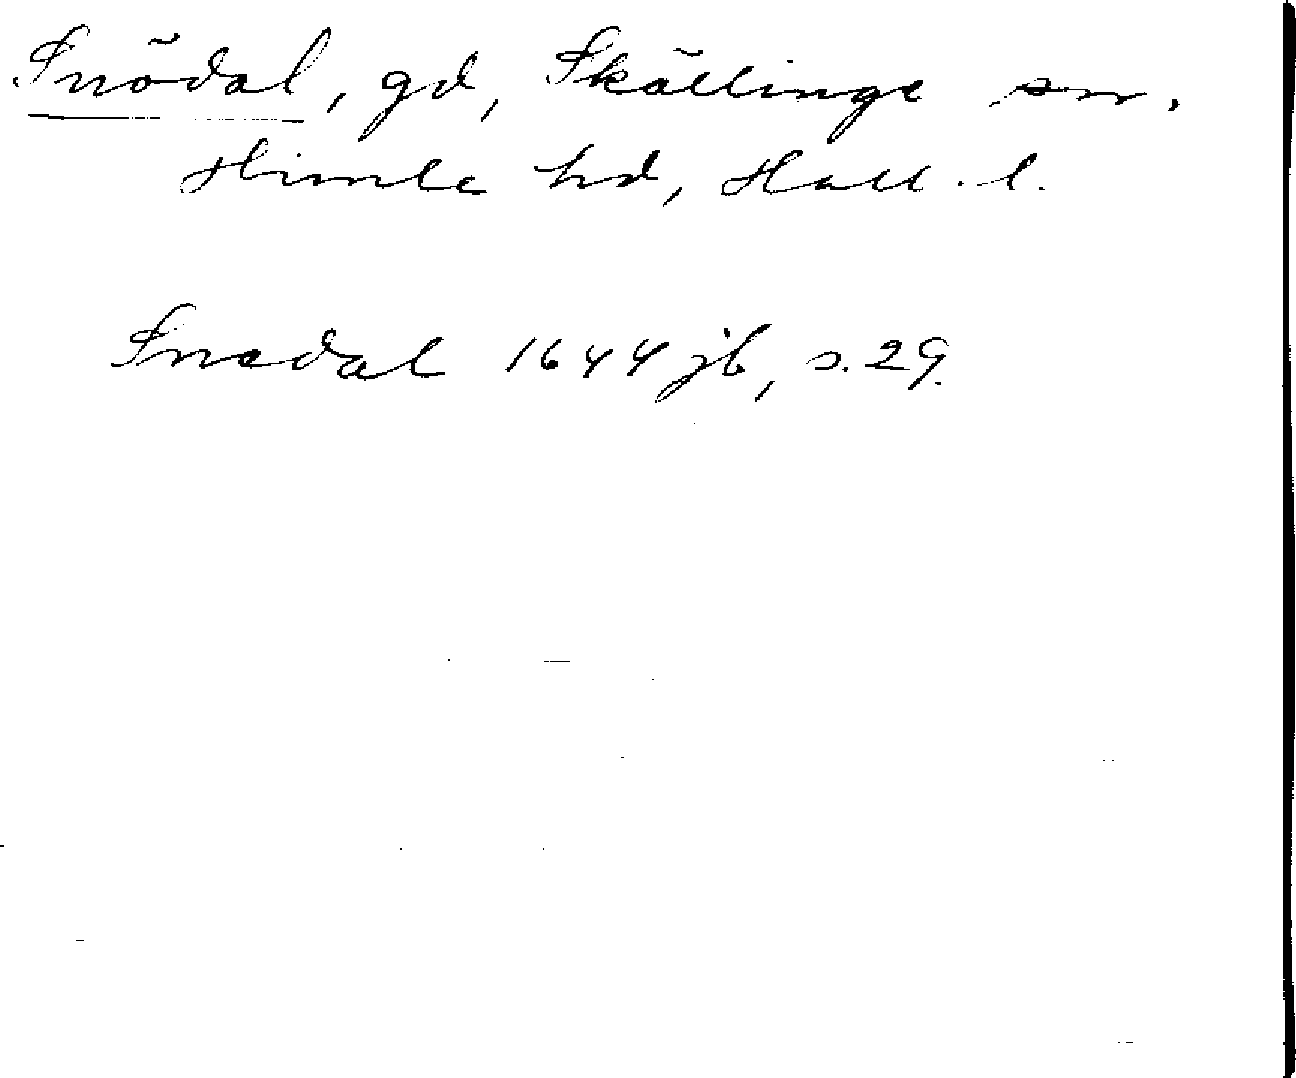 Snödal, gd, Skällinge sn.
Himle hd, Hall. l.
Snedal 1644 jb, s. 29.